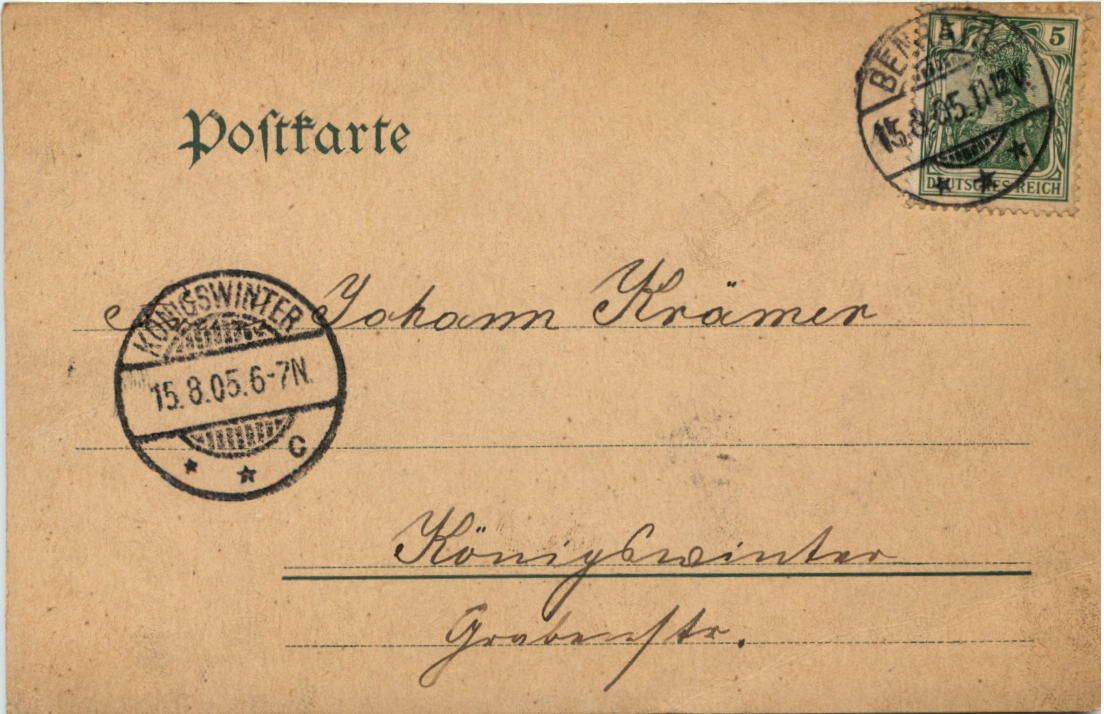 5 5
BENRATH
15.8.05.11-12V.
DEUTSCHES REICH
Postkarte
Johann Krämer
KÖNIGSWINTER
15.8.05.6-7N.
C
Königswinter
Grabenstr.